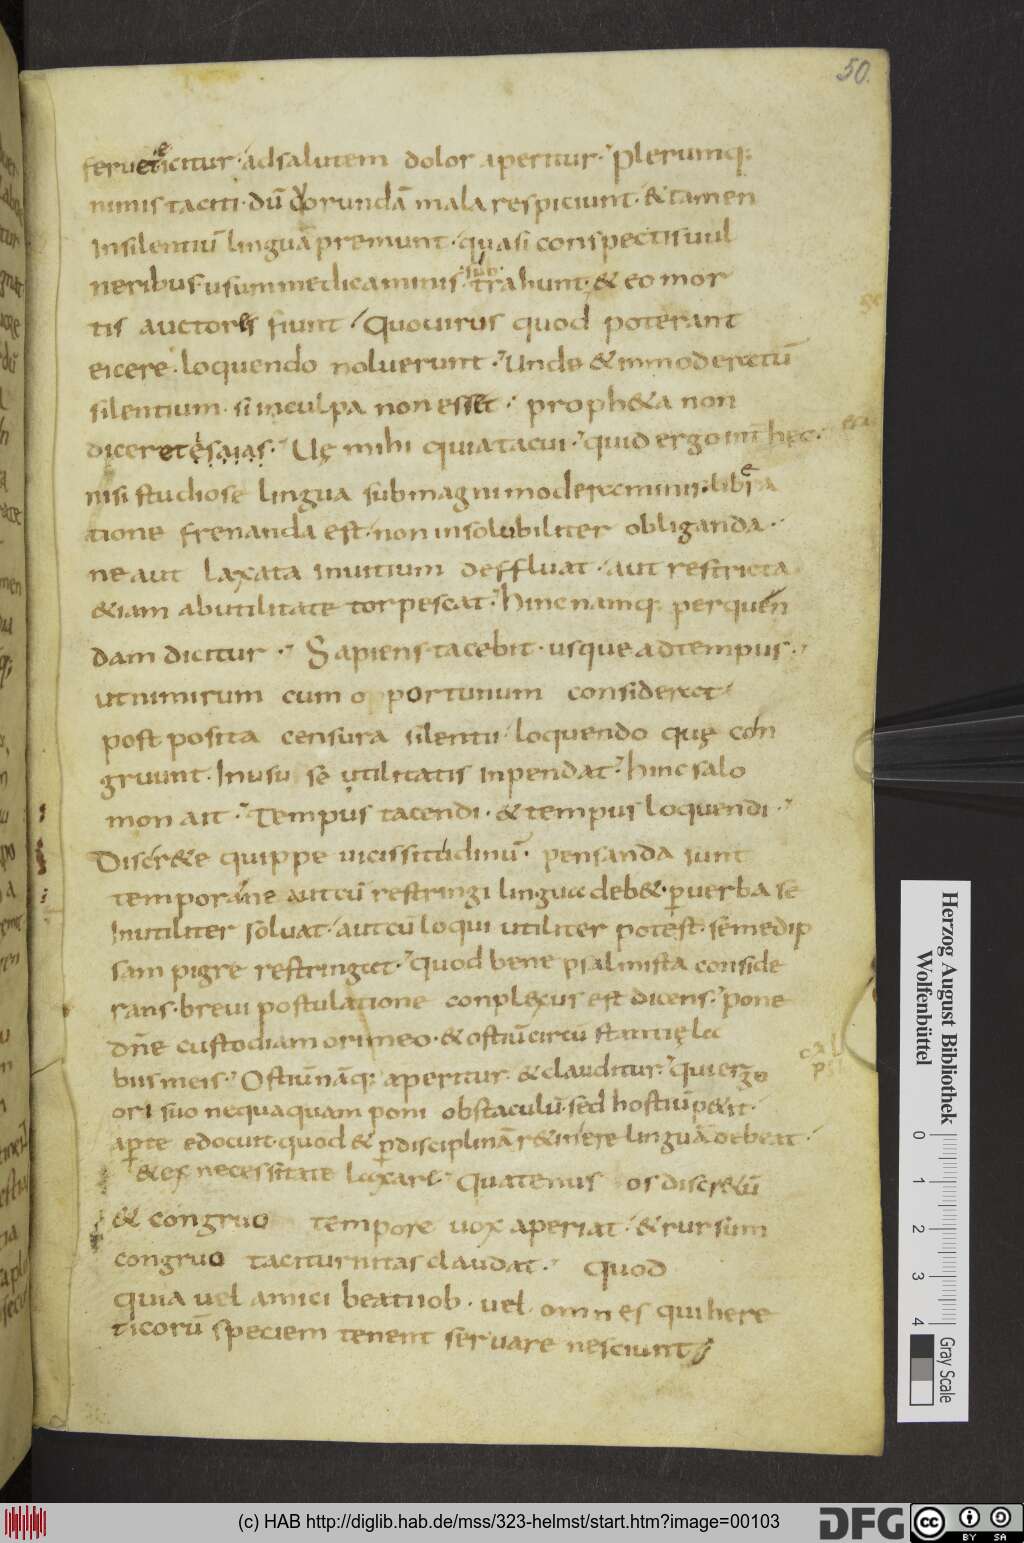 50.
feruet eicitur· ad salutem dolor aperitur· Plerumq:
nimis taciti· dū quorundā mala respiciunt· & tamen
In silentiū linguā premunt· quasi conspectis uul
neribus· usum medicaminis· subtrahunt· & eo mor
tis auctores fiunt· Quo uirus quod poterant
eicere· loquendo noluerunt· Unde & inmoderatū
silentium· si in culpa non esset· proph&a non
diceret esaias· Uę mihi quia tacui· quid ergo int̄ hęc·
nisi studiose lingua sub magni moderaminis· libra
tione frenanda est· non insolubiliter obliganda·
ne aut laxata in uitium deffluat· aut restricta
&iam ab utilitate torpescat· hinc namq: per quen
dam dicitur· Sapiens tacebit· usque ad tempus·
ut nimirum cum opportunum considerat·
post posita censura silentii· loquendo quę con
gruunt· In usu se utilitatis inpendat· hinc salo
mon ait· Tempus tacendi· & tempus loquendi·
Discr&e quippe uicissitudinū· pensanda sunt
tempora· ne aut cū restringi lingua deb&· p uerba se
Inutiliter soluat· aut cū loqui utiliter potest· semedip
sam pigre restringat· quod bene psalmista conside
rans· breui postulatione conplexus est dicens· Pone
dn̄e custodiam ori meo· & ostiū circū stantię la
bus meis· Ostiū nāq: aperitur· & clauditur· qui ergo
ori suo nequaquam poni obstaculū· sed hostiū p&iit·
apte edocuit· quod & p disciplinā r&inere linguā debeat·
& ex necessitate laxari· Quatenus os discr&ū
& congruo tempore uox aperiat· & rursum
congruo taciturnitas claudat· Quod
quia uel amici beati iob· uel omnes qui here
ticorū speciem tenent seruare nesciunt
Herzog August Bibliothek
Wolfenbüttel
0 1 2 3 4
Gray Scale
(c) HAB http://diglib.hab.de/mss/323-helmst/start.htm?image=00103
DFG
cc BY SA